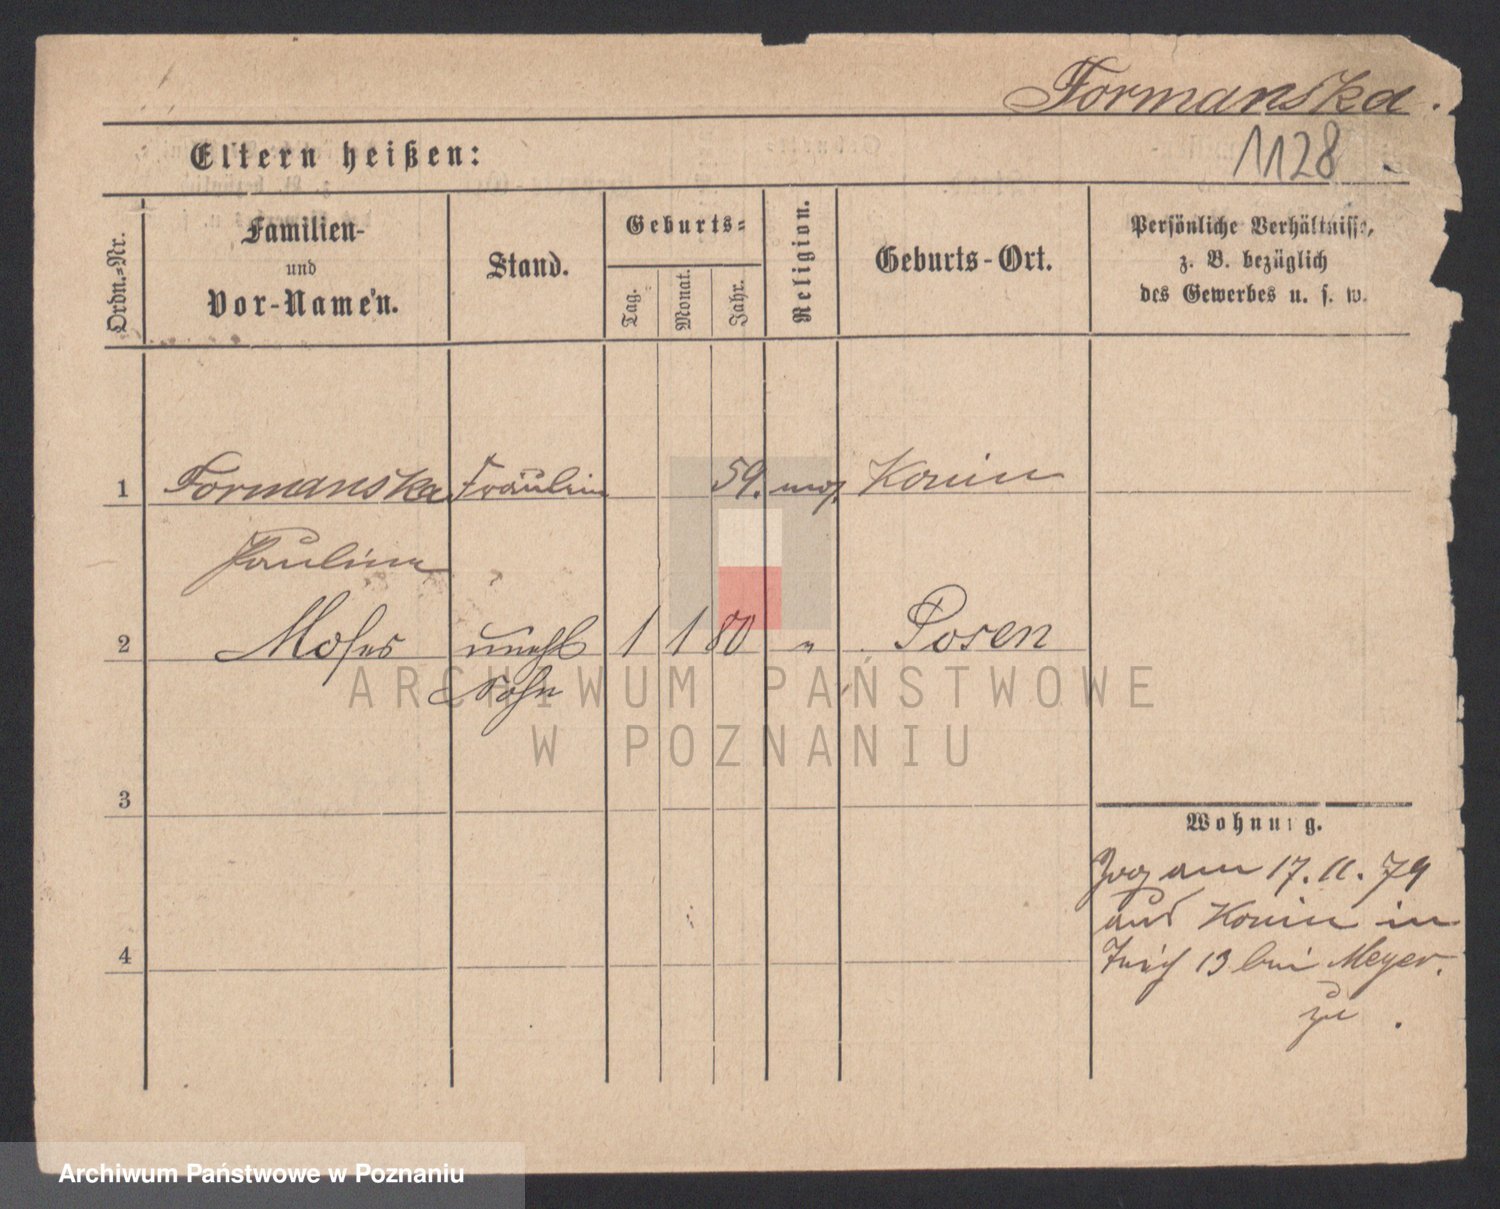 Formanska.
1128
Eltern heißen:
Ordn.=Nr.
Familien-
und
Vor-Namen.
Stand.
Geburts=
Tag.
Monat.
Jahr.
Religion.
Geburts-Ort.
Persönliche Verhältnisse,
z. B. bezüglich
des Gewerbes u. s. w.
1 Formanska Fräulein 59. mos. Konin
Pauline
2 Moses unehl 1 1 80 " Posen
Sohn
ARCHIWUM PAŃSTWOWE
W POZNANIU
3
Wohnung.
Zog am 17. 11. 79
aus Konin in
4
13 bei Meyer.
zu
Archiwum Państwowe w Poznaniu